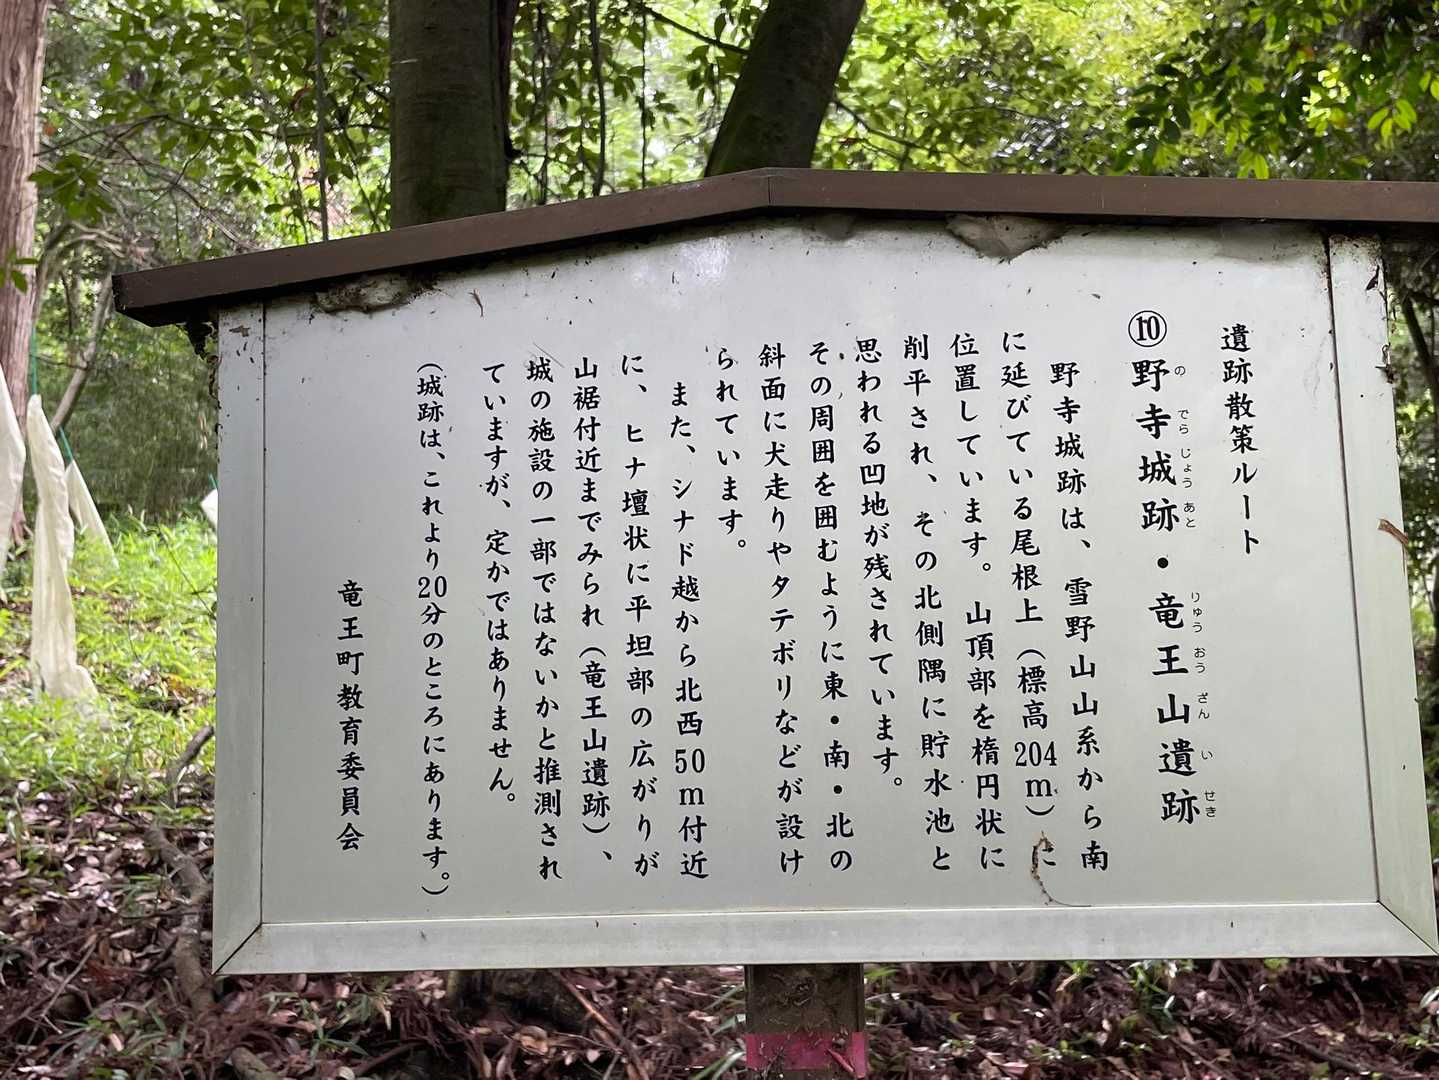 遺跡散策ルート
⑩野寺城跡・竜王山遺跡
のでらじょうあと りゅうおうざんいせき
野寺城跡は、雪野山山系から南
に延びている尾根上（標高204m）に
位置しています。山頂部を楕円状に
削平され、その北側隅に貯水池と
思われる凹地が残されています。
その周囲を囲むように東・南・北の
斜面に犬走りやタテボリなどが設け
られています。
また、シナド越から北西50m付近
に、ヒナ壇状に平坦部の広がりが
山裾付近までみられ（竜王山遺跡）、
城の施設の一部ではないかと推測され
ていますが、定かではありません。
（城跡は、これより20分のところにあります。）
竜王町教育委員会